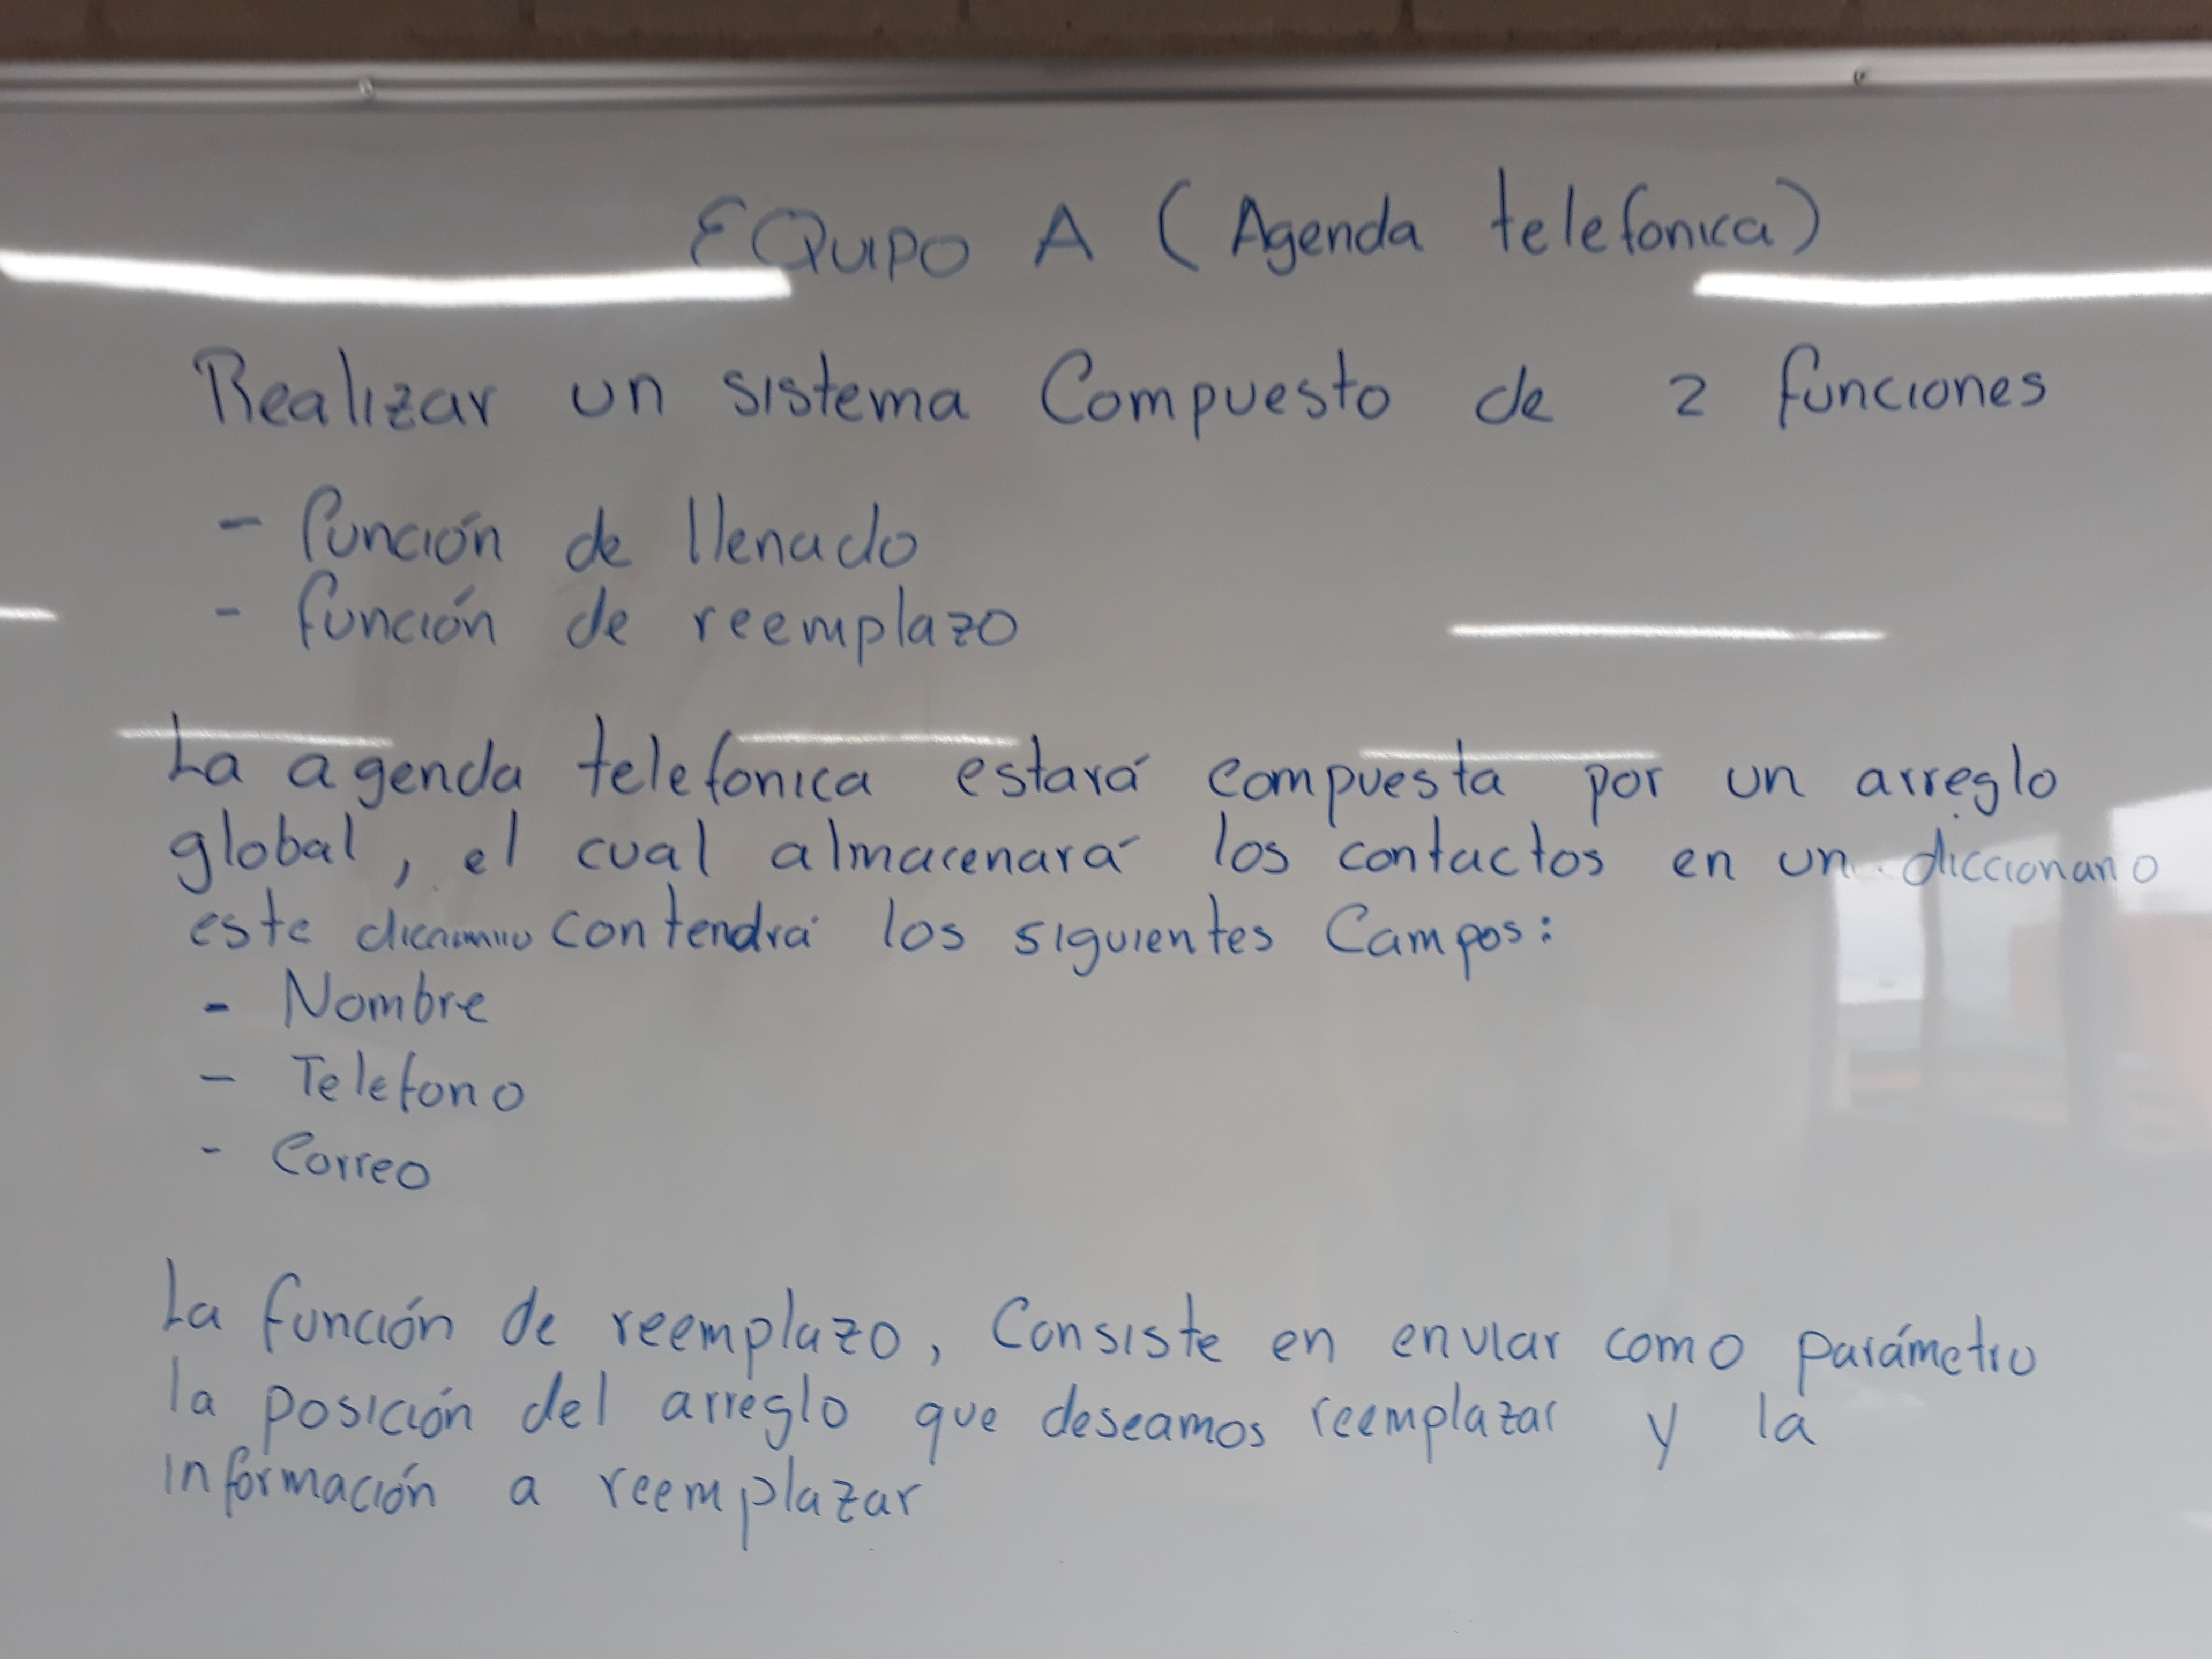 EQUIPO A (Agenda telefonica)
Realizar un sistema Compuesto de 2 funciones
- función de llenado
- función de reemplazo
La agenda telefonica estará compuesta por un arreglo
global, el cual almacenará los contactos en un diccionario
este diccionario contendrá los siguientes Campos:
- Nombre
- Telefono
- Correo
La función de reemplazo, Consiste en enviar como parámetro
la posición del arreglo que deseamos reemplazar y la
información a reemplazar